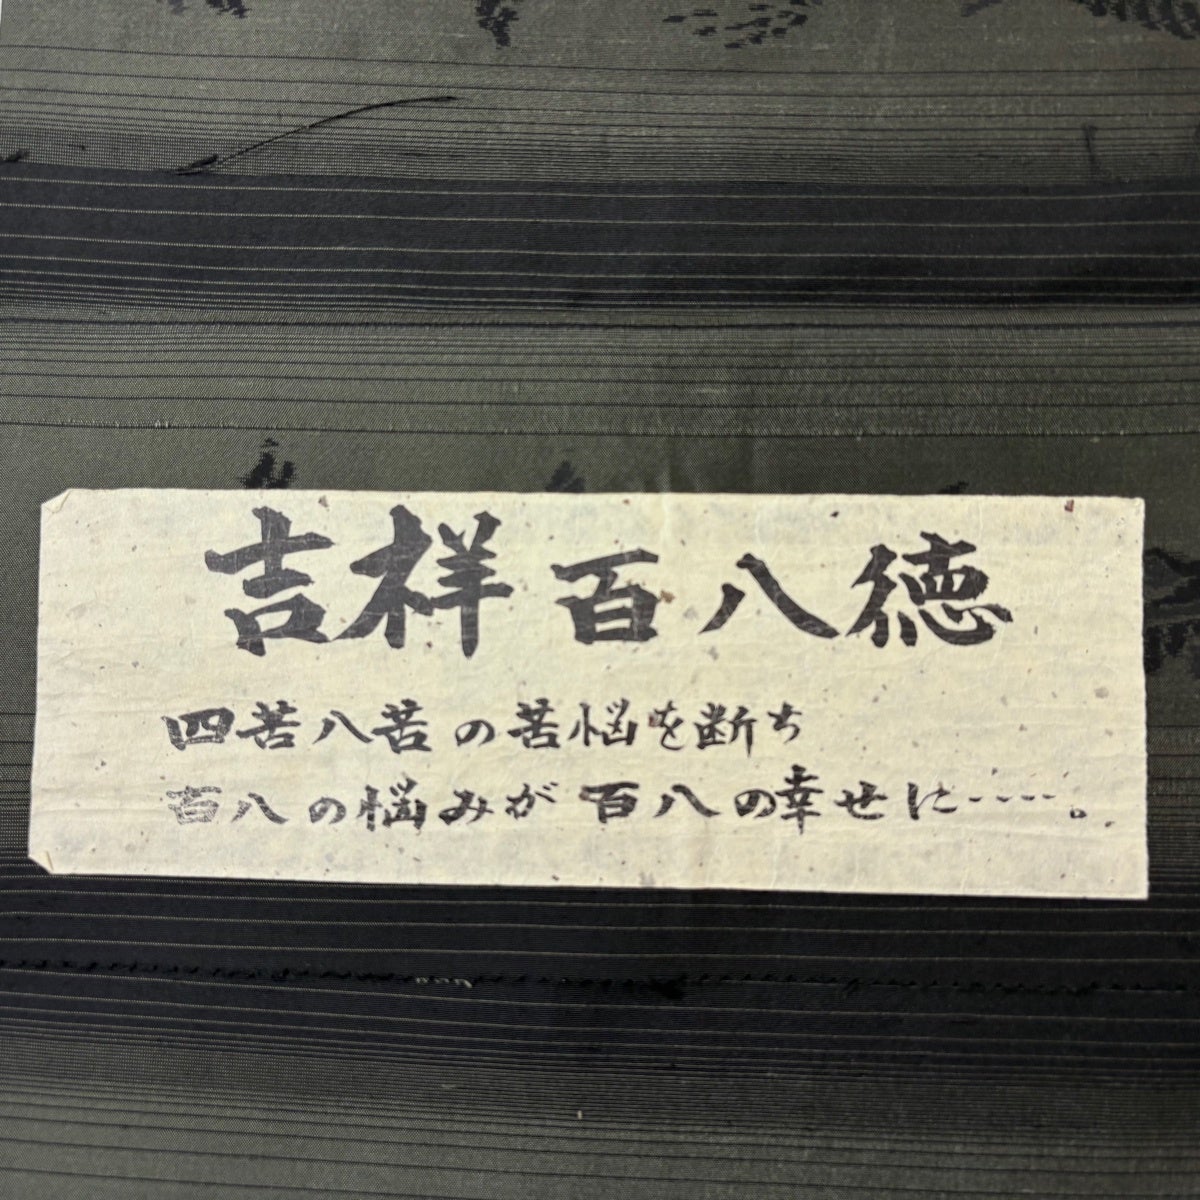 吉祥百八徳
四苦八苦の苦悩を断ち
百八の悩みが百八の幸せに……。